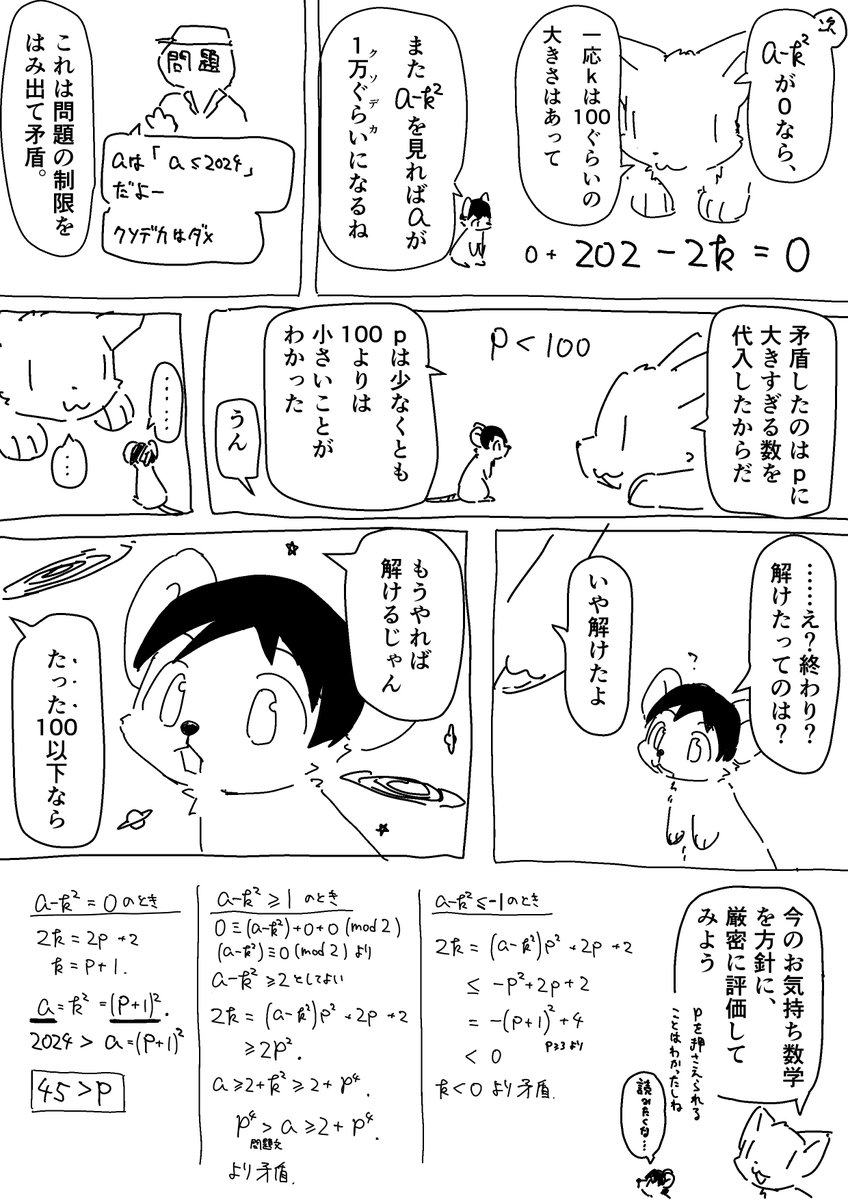 次
a-k²
が0なら、
一応kは100ぐらいの
大きさはあって
0+ 202 - 2k = 0
また a-k²
を見ればaが
クソデカ
1万ぐらいになるね
問題
aは「a≤2024」
だよー
クソデカはダメ
これは問題の制限を
はみ出て矛盾。
矛盾したのはpに
大きすぎる数を
代入したからだ
p<100
pは少なくとも
100よりは
小さいことが
わかった
うん
……
…
……え?終わり?
解けたってのは?
?
いや解けたよ
もうやれば
解けるじゃん
たった
100以下なら
今のお気持ち数学
を方針に、
厳密に評価して
みよう
pを押さえられる
ことはわかったしね
読みたくな…
a-k²=0のとき
2k=2p+2
k=p+1.
a=k²=(p+1)².
2024>a=(p+1)²
45>p
a-k²≥1のとき
0≡(a-k²)+0+0 (mod 2)
(a-k²)≡0 (mod 2)より
a-k²≥2としてよい
2k=(a-k²)p²+2p+2
≥2p².
a≥2+k²≥2+p⁴.
p⁴>a≥2+p⁴.
問題文
より矛盾.
a-k²≤-1のとき
2k=(a-k²)p²+2p+2
≤-p²+2p+2
=-(p+1)²+4
p≥3より
<0
k<0より矛盾.